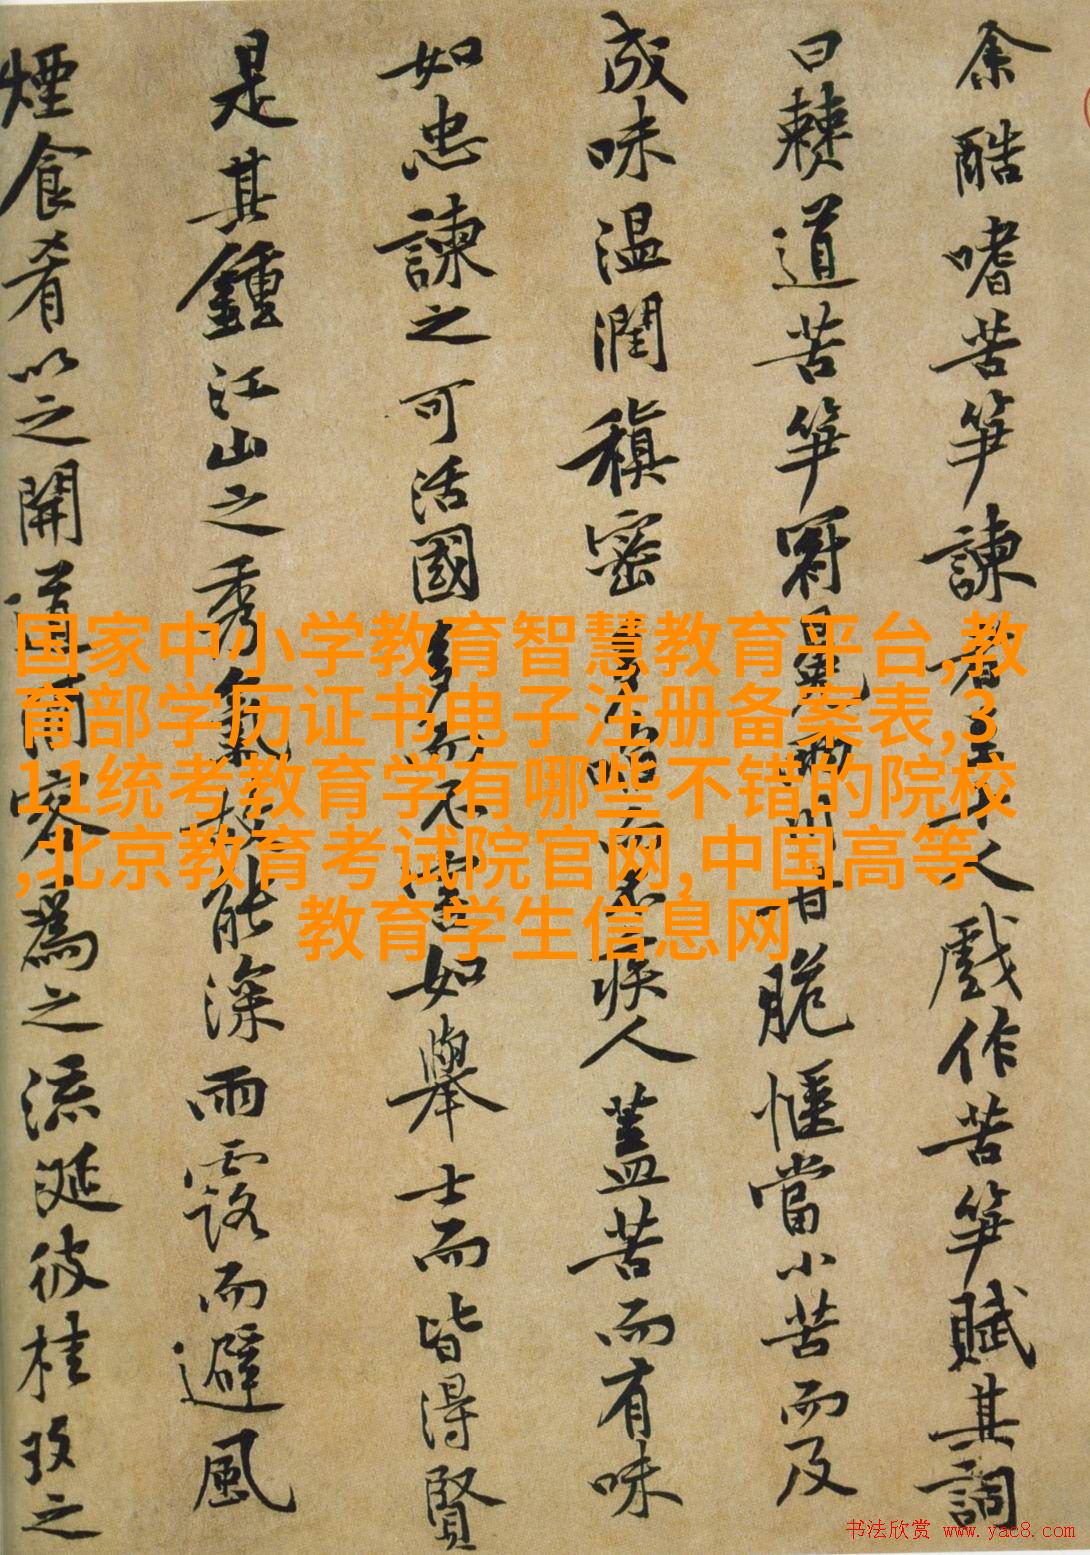 余酷嗜苦笋諫者至十人戲作苦笋賦其詞
曰僰道苦笋冠冕兩川甘脆愜當小苦而及
成味温潤稹密多啗而不疾人蓋苦而有味
如忠諫之可活國多而不害如舉士而皆得賢
是其鍾江山之秀氣故能深雨露而避風
煙食肴以之開道酒客爲之流涎彼桂玫之
国家中小学教育智慧教育平台,教
育部学历证书电子注册备案表,3
11统考教育学有哪些不错的院校
,北京教育考试院官网,中国高等
教育学生信息网
书法欣赏 www.yac8.com